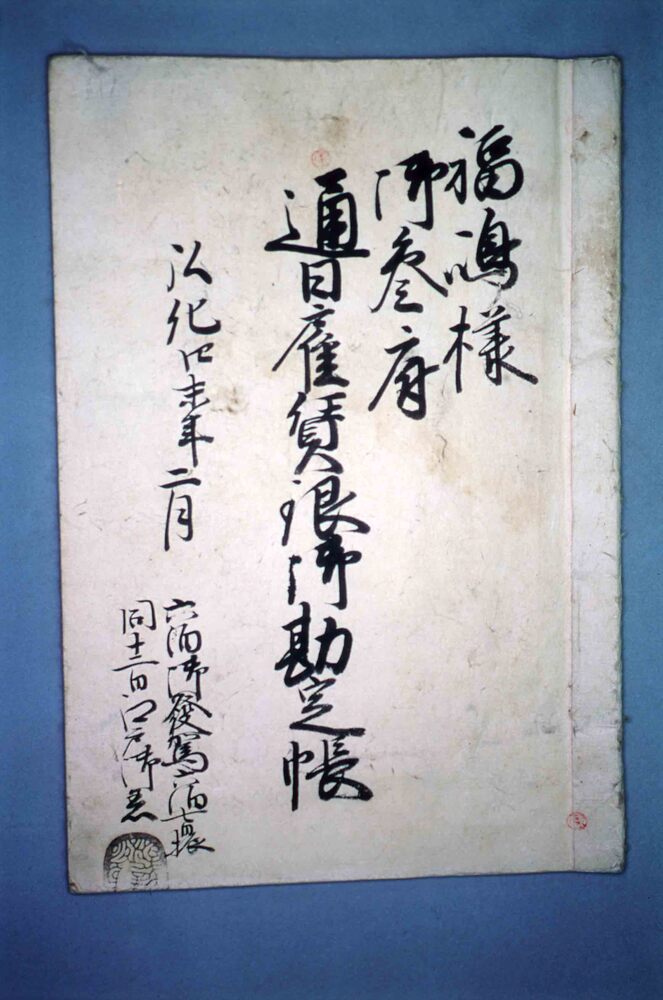 福嶋様
御参府
通日雇賃銀御勘定帳
弘化四未年二月
六泊御發駕 泊七振
同十二日江戸御着